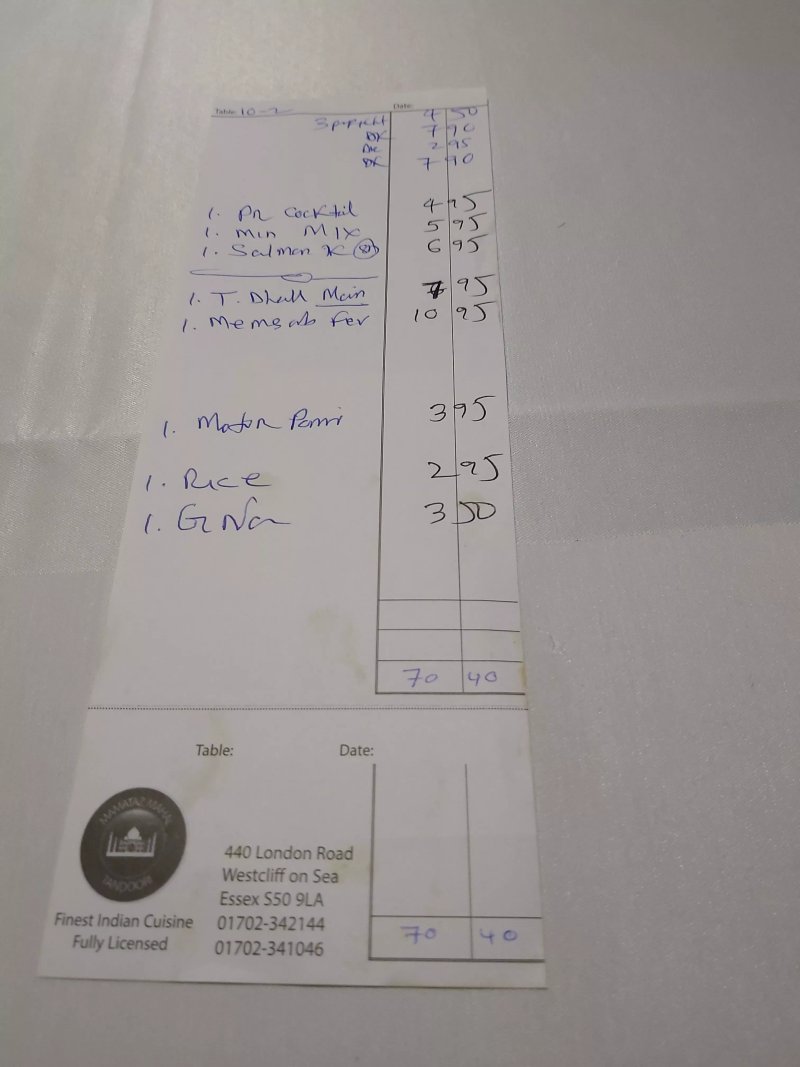 Table: 10-2 Date:
3 4 50
DK 7 90
2 95
DK 7 90
1. Pn Cocktail 4 95
1. Min Mix 5 95
1. Salmon K 6 95
1. T. Dhall Main 7 95
1. Memsab Fev 10 95
1. Mator Panir 3 95
1. Rice 2 95
1. G Nan 3 50
70 40
Table: Date:
MAMATAZ MAHAL
TANDOORI
440 London Road
Westcliff on Sea
Essex SS0 9LA
Finest Indian Cuisine 01702-342144
Fully Licensed 01702-341046
70 40